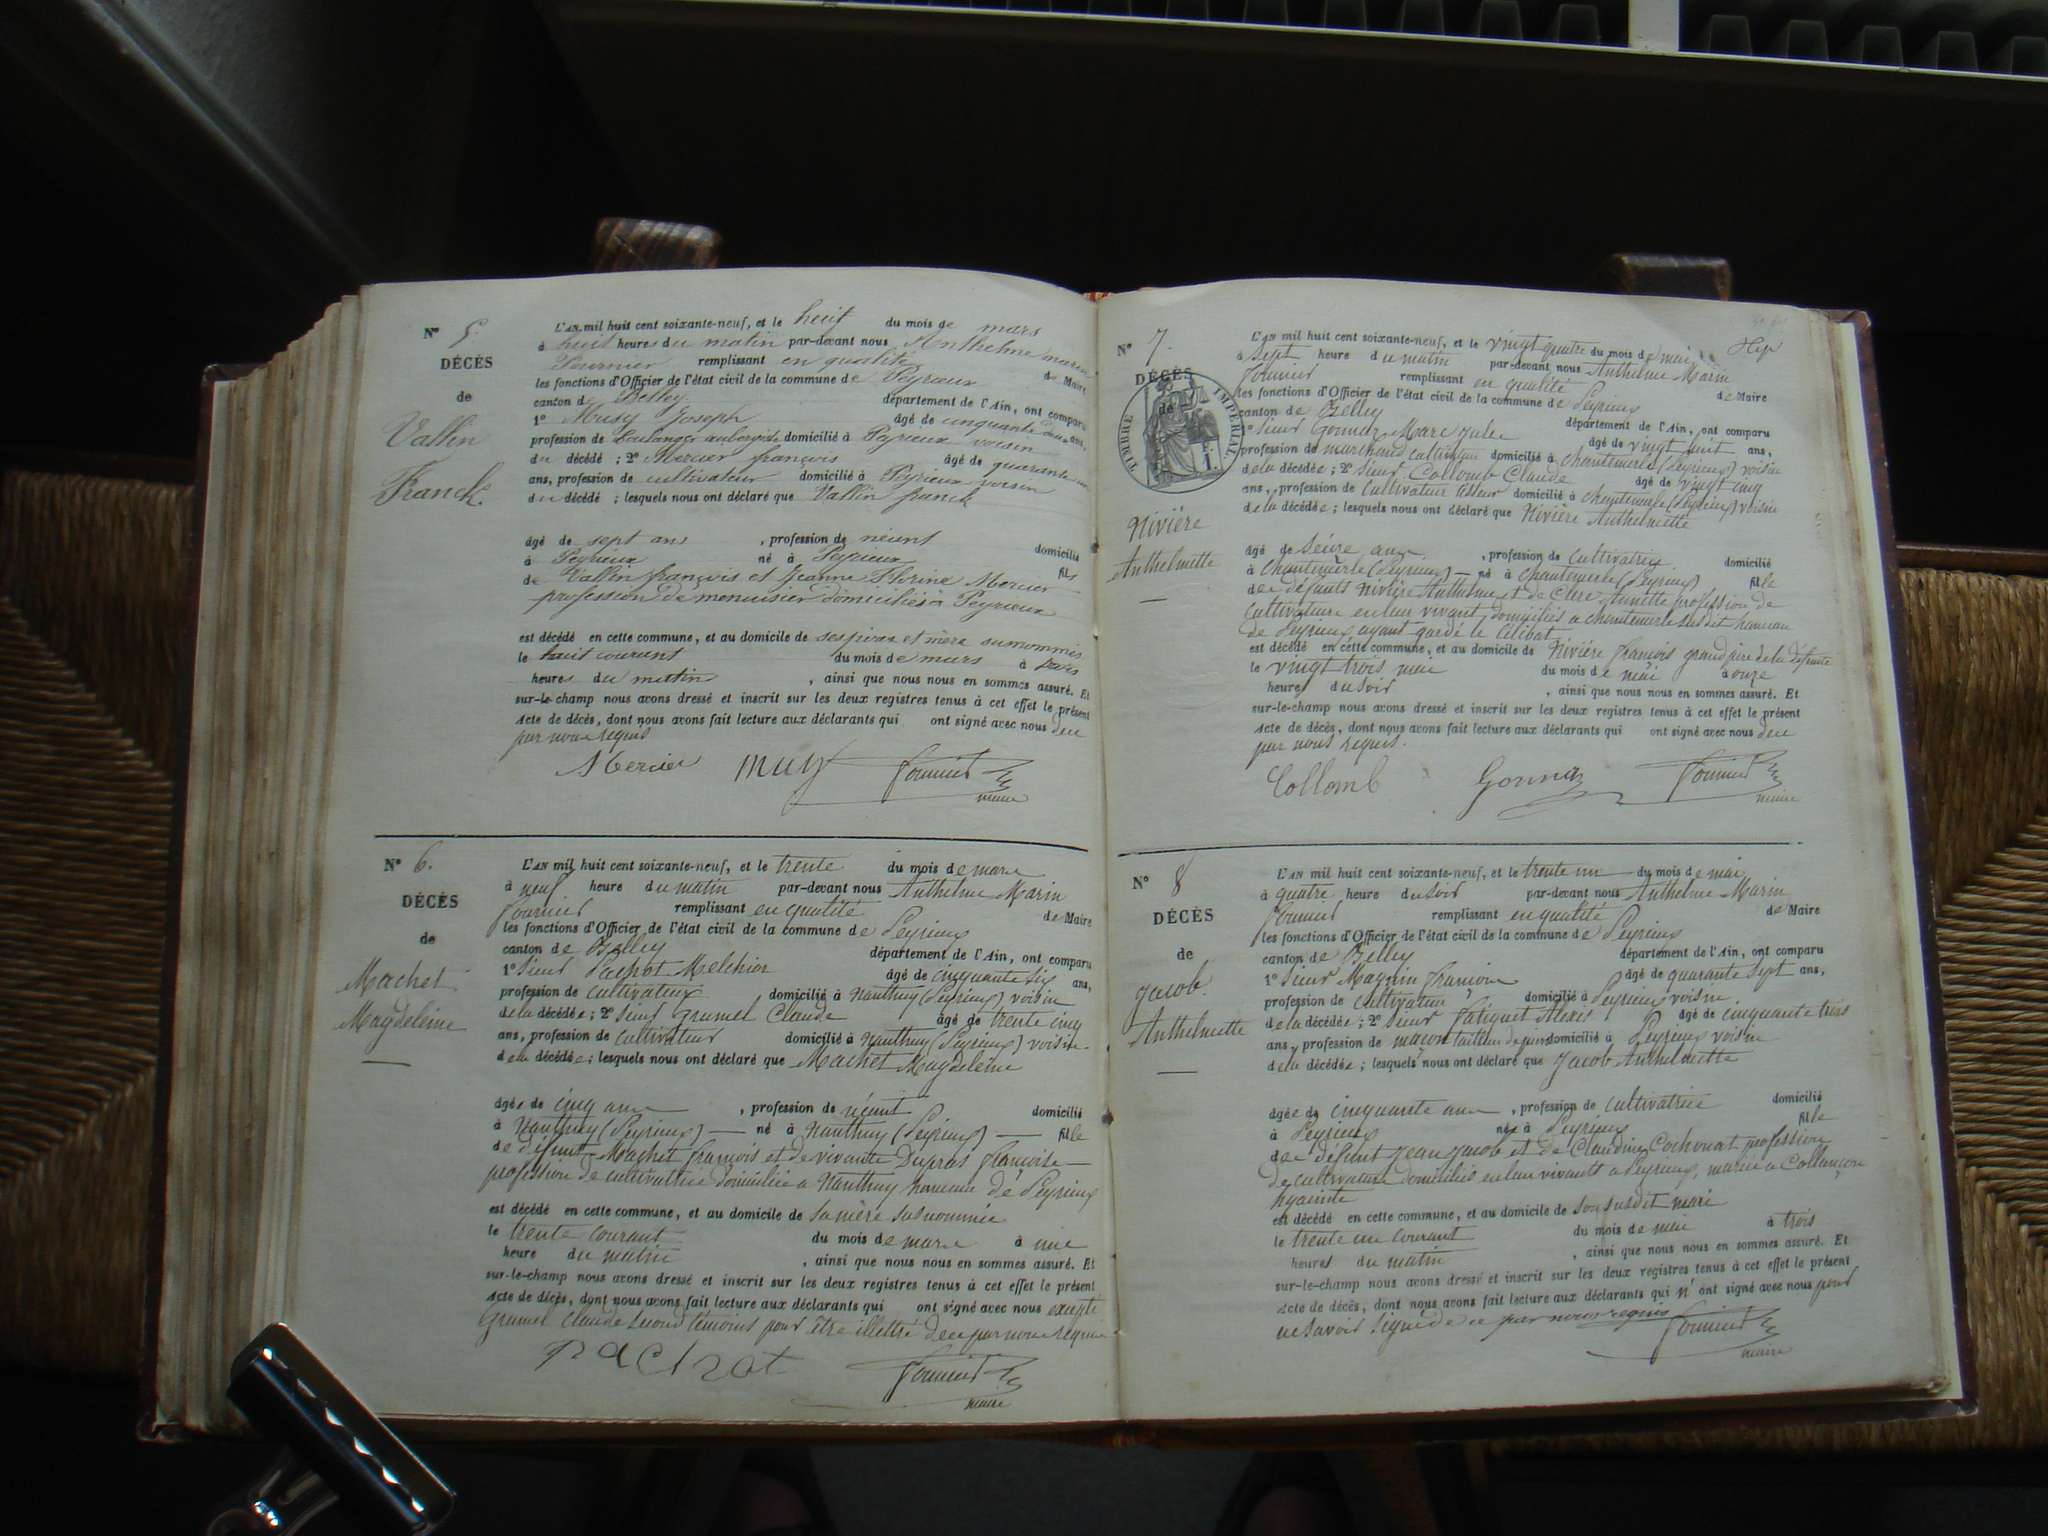 N° 5.
DÉCÈS
de
Vallin
Franck.
L'AN mil huit cent soixante-neuf, et le huit du mois de mars
à huit heures du matin par-devant nous Anthelme marin
Fournier remplissant en qualité de Maire
les fonctions d'Officier de l'état civil de la commune de Peyrieux
canton de Belley département de l'Ain, ont comparu
1° Musy Joseph âgé de cinquante deux ans,
profession de boulanger aubergiste domicilié à Peyrieux voisin
du décédé ; 2° Mercier françois âgé de quarante un
ans, profession de cultivateur domicilié à Peyrieux voisin
du décédé ; lesquels nous ont déclaré que Vallin franck
âgé de sept ans , profession de néant domicilié
à Peyrieux né à Peyrieux fils
de Vallin françois et Jeanne Mercier
profession de menuisier domiciliés à Peyrieux
est décédé en cette commune, et au domicile de ses pere et mère surnommés
le huit courant du mois de mars à
heures du matin , ainsi que nous nous en sommes assuré. Et
sur-le-champ nous avons dressé et inscrit sur les deux registres tenus à cet effet le présent
acte de décès, dont nous avons fait lecture aux déclarants qui ont signé avec nous de ce
par nous requis
Mercier Musy Fournier
maire
N° 6.
DÉCÈS
de
Machet
Magdeleine
L'AN mil huit cent soixante-neuf, et le trente du mois de mars
à neuf heure du matin par-devant nous Anthelme Marin
Fournier remplissant en qualité de Maire
les fonctions d'Officier de l'état civil de la commune de Peyrieux
canton de Belley département de l'Ain, ont comparu
1° Sieur Pachot Melchior âgé de cinquante six ans,
profession de cultivateur domicilié à Nanthuy (Peyrieux) voisin
de la décédée ; 2° Sieur Gramel Claude âgé de trente cinq
ans, profession de cultivateur domicilié à Nanthuy (Peyrieux) voisin
de la décédée ; lesquels nous ont déclaré que Machet Magdeleine
âgée de cinq ans , profession de néant domicilié
à Nanthuy (Peyrieux) né à Nanthuy (Peyrieux) fille
de défunt Machet françois et de vivante Dupras françoise
profession de cultivatrice domiciliée a Nanthuy hameau de Peyrieux
est décédé en cette commune, et au domicile de sa mère susnommée
le trente courant du mois de mars à une
heure du matin , ainsi que nous nous en sommes assuré. Et
sur-le-champ nous avons dressé et inscrit sur les deux registres tenus à cet effet le présent
acte de décès, dont nous avons fait lecture aux déclarants qui ont signé avec nous excepté
Gramel Claude second témoins pour être illettré de ce par nous requis
Pachot Fournier
maire
N° 7.
DÉCÈS
de
TIMBRE IMPÉRIAL
Nivière
Anthelmette
L'AN mil huit cent soixante-neuf, et le vingt quatre du mois de mai
à sept heure du matin par-devant nous Anthelme Marin
Fournier remplissant en qualité de Maire
les fonctions d'Officier de l'état civil de la commune de Peyrieux
canton de Belley département de l'Ain, ont comparu
1° Sieur Gonnaz Marc Jules âgé de vingt huit ans,
profession de marchand cultivateur domicilié à Chantemerle (Peyrieux) voisin
de la décédée ; 2° Sieur Collomb Claude âgé de vingt cinq
ans, profession de cultivateur tisseur domicilié à Chantemerle (Peyrieux) voisin
de la décédée ; lesquels nous ont déclaré que Nivière Anthelmette
âgé de seize ans , profession de cultivatrice domicilié
à Chantemerle (Peyrieux) né à Chantemerle (Peyrieux) fille
de défunts Nivière Anthelme et de Clerc Annette profession de
cultivateurs en leur vivant domiciliés a Chantemerle susdit hameau
de Peyrieux ayant gardé le Célibat
est décédé en cette commune, et au domicile de Nivière françois grand père de la défunte
le vingt trois mai du mois de mai à onze
heures du soir , ainsi que nous nous en sommes assuré. Et
sur-le-champ nous avons dressé et inscrit sur les deux registres tenus à cet effet le présent
acte de décès, dont nous avons fait lecture aux déclarants qui ont signé avec nous de ce
par nous requis.
Collomb Gonnaz Fournier
maire
N° 8
DÉCÈS
de
Jacob
Anthelmette
L'AN mil huit cent soixante-neuf, et le trente un du mois de mai
à quatre heure du soir par-devant nous Anthelme Marin
Fournier remplissant en qualité de Maire
les fonctions d'Officier de l'état civil de la commune de Peyrieux
canton de Belley département de l'Ain, ont comparu
1° Sieur Magnin françois âgé de quarante sept ans,
profession de cultivateur domicilié à Peyrieux voisin
de la décédée ; 2° Sieur Alexis âgé de cinquante trois
ans, profession de maçon tailleur de pierre domicilié à Peyrieux voisin
de la décédée ; lesquels nous ont déclaré que Jacob Anthelmette
âgée de cinquante ans , profession de cultivatrice domicilié
à Peyrieux née à Peyrieux fille
de defunt Jean Jacob et de Claudine Cochonat profession
de cultivateurs domiciliés en leur vivants a Peyrieux, mariée a Collançon
hyacinte
est décédé en cette commune, et au domicile de son susdit mari
le trente un courant du mois de mai à trois
heures du matin , ainsi que nous nous en sommes assuré. Et
sur-le-champ nous avons dressé et inscrit sur les deux registres tenus à cet effet le présent
acte de décès, dont nous avons fait lecture aux déclarants qui n'ont signé avec nous pour
ne savoir signé de ce par nous requis Fournier
maire